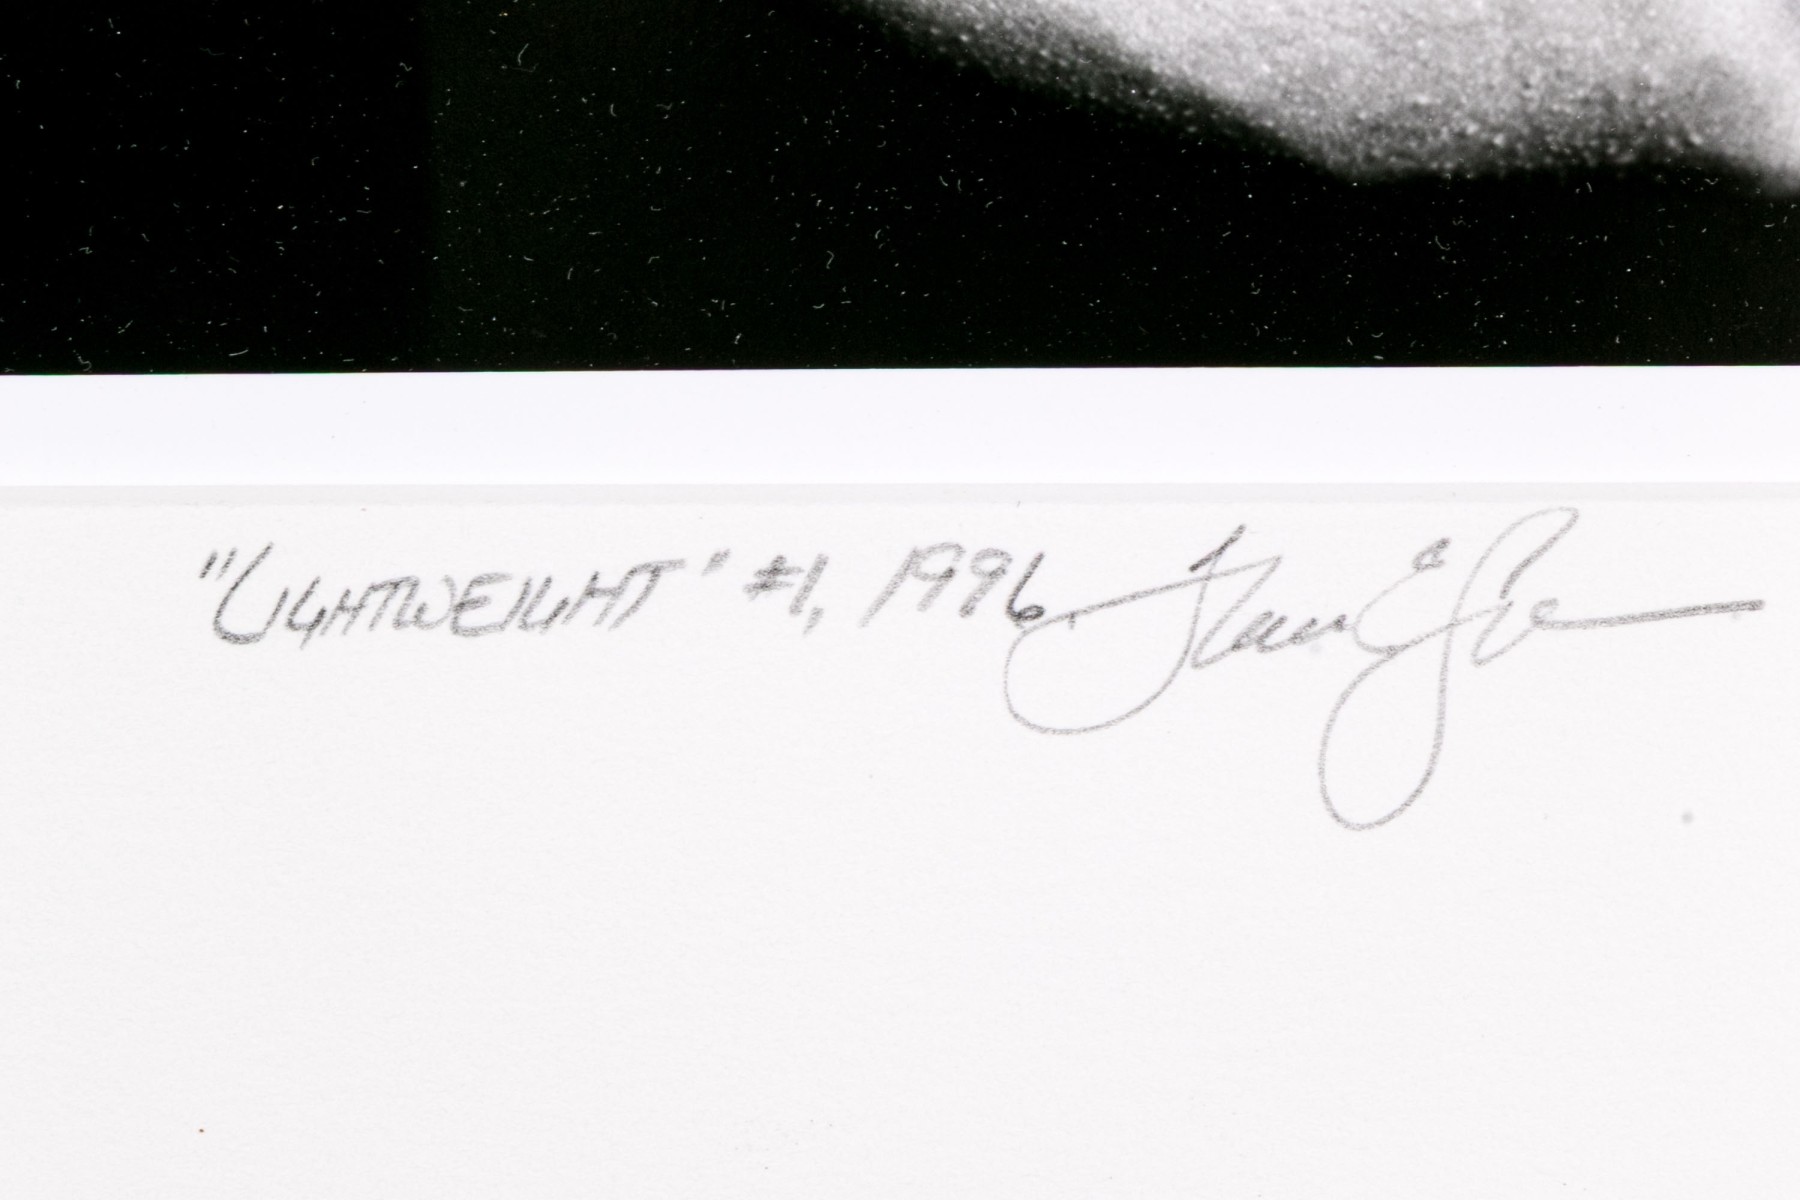 "LIGHTWEIGHT" #1, 1996